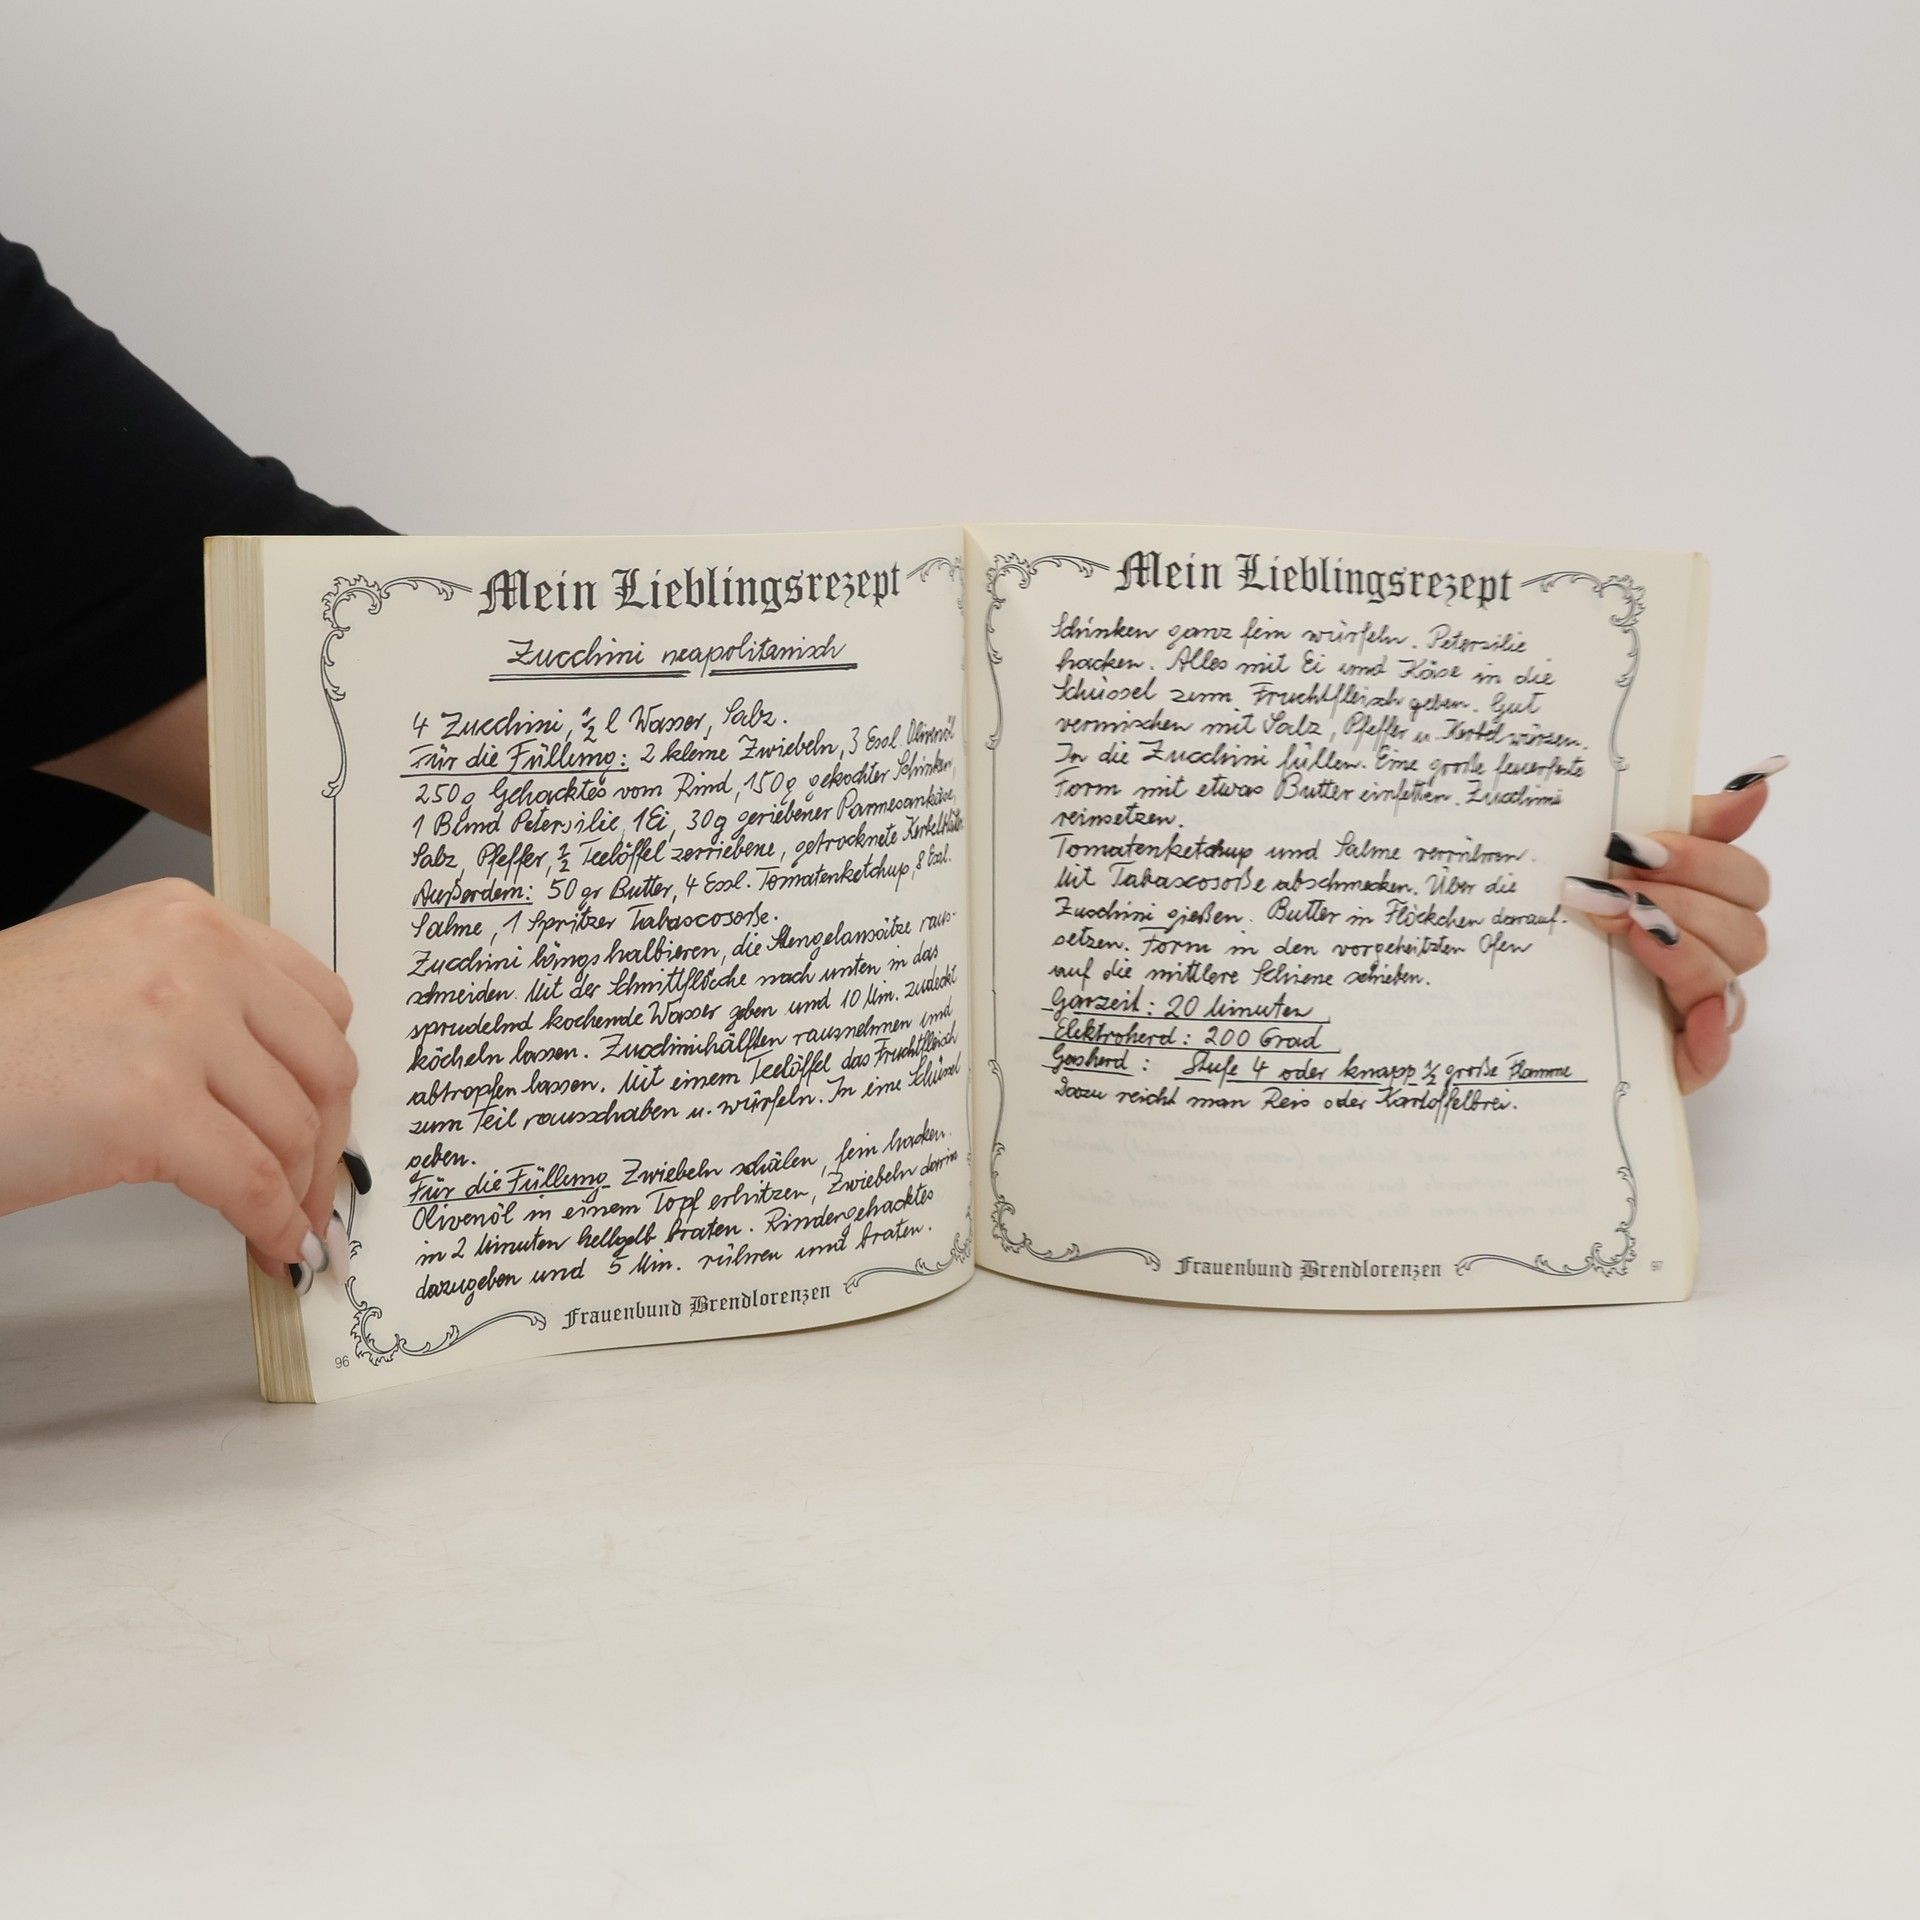 Mein Lieblingsrezept
Zucchini neapolitanisch
4 Zucchini, 1/2 l Wasser, Salz.
Für die Füllung: 2 kleine Zwiebeln, 3 Essl. Olivenöl
250g Gehacktes vom Rind, 150g gekochter Schinken,
1 Bund Petersilie, 1 Ei, 30g geriebener Parmesankäse,
Salz, Pfeffer, 1/2 Teelöffel zerriebene, getrocknete
Außerdem: 50 gr Butter, 4 Essl. Tomatenketchup, 8 Essl.
Sahne, 1 Spritzer Tabascosoße.
Zucchini längs halbieren, die Stengelansätze raus-
schneiden. Mit der Schnittfläche nach unten in das
sprudelnd kochende Wasser geben und 10 Min. zudeckt
köcheln lassen. Zucchinihälften rausnehmen und
abtropfen lassen. Mit einem Teelöffel das Fruchtfleisch
zum Teil rausschaben u. würfeln. In eine Schüssel
geben.
Für die Füllung Zwiebeln schälen, fein hacken.
Olivenöl in einem Topf erhitzen, Zwiebeln darin
in 2 Minuten hellgelb braten. Rindergehacktes
dazugeben und 5 Min. rühren und braten.
Frauenbund Brendlorenzen
96
Mein Lieblingsrezept
Schinken ganz fein würfeln. Petersilie
hacken. Alles mit Ei und Käse in die
Schüssel zum Fruchtfleisch geben. Gut
vermischen mit Salz, Pfeffer u. Kerbel würzen.
In die Zucchini füllen. Eine große feuerfeste
Form mit etwas Butter einfetten. Zucchini
reinsetzen.
Tomatenketchup und Sahne verrühren.
Mit Tabascosoße abschmecken. Über die
Zucchini gießen. Butter in Flöckchen darauf-
setzen. Form in den vorgeheitzten Ofen
auf die mittlere Schiene schieben.
Garzeit: 20 Minuten
Elektroherd: 200 Grad
Gasherd: Stufe 4 oder knapp 1/2 große Flamme
Dazu reicht man Reis oder Kartoffelbrei.
Frauenbund Brendlorenzen
97